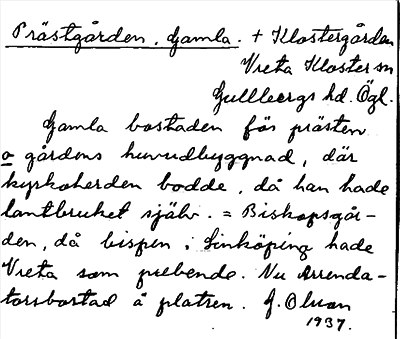 Prästgården, Gamla. + Klostergården
Vreta Kloster sn
Gullbergs hd. Ögl.
Gamla bostaden för prästen
o gårdens huvudbyggnad, där
kyrkoherden bodde, då han hade
lantbruket själv. = Biskopsgår-
den, då bispen i Linköping hade
Vreta som prebende. Nu Arrenda-
torsbostad å platsen. G. Olson
1937.